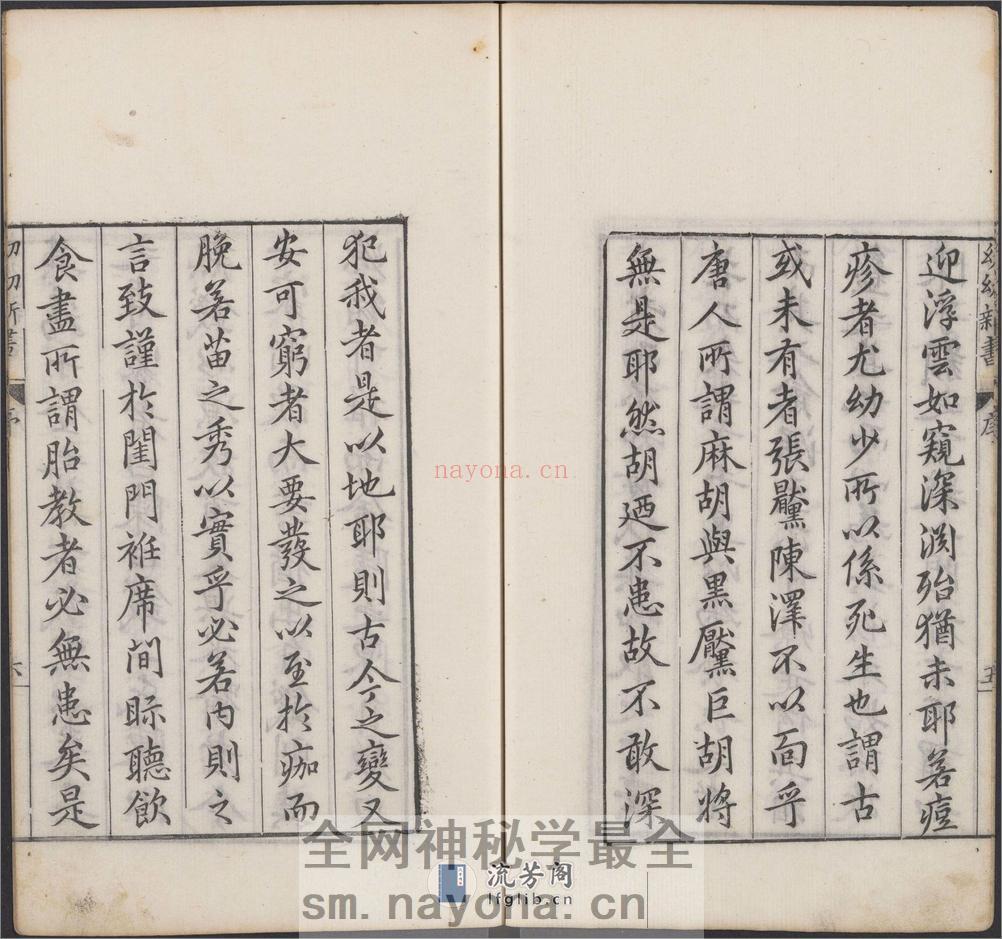 幼幼新書 序 五
迎浮雲如窺深淵殆猶未耶若痘
疹者尤幼少所以係死生也謂古
或未有者張黶陳澤不以面乎
唐人所謂麻胡與黑黶巨胡將
無是耶然胡廼不患故不敢深
犯我者是以地耶則古今之變又
安可窮者大要發之以至於痂而
脫若苗之秀以實乎必若內則之
言致謹於閨門袵席間眎聽飲
食盡所謂胎教者必無患矣是
幼幼新書 序 六
nayona.cn
全网神秘学最全
流芳阁
lfglib.cn
sm.nayona.cn